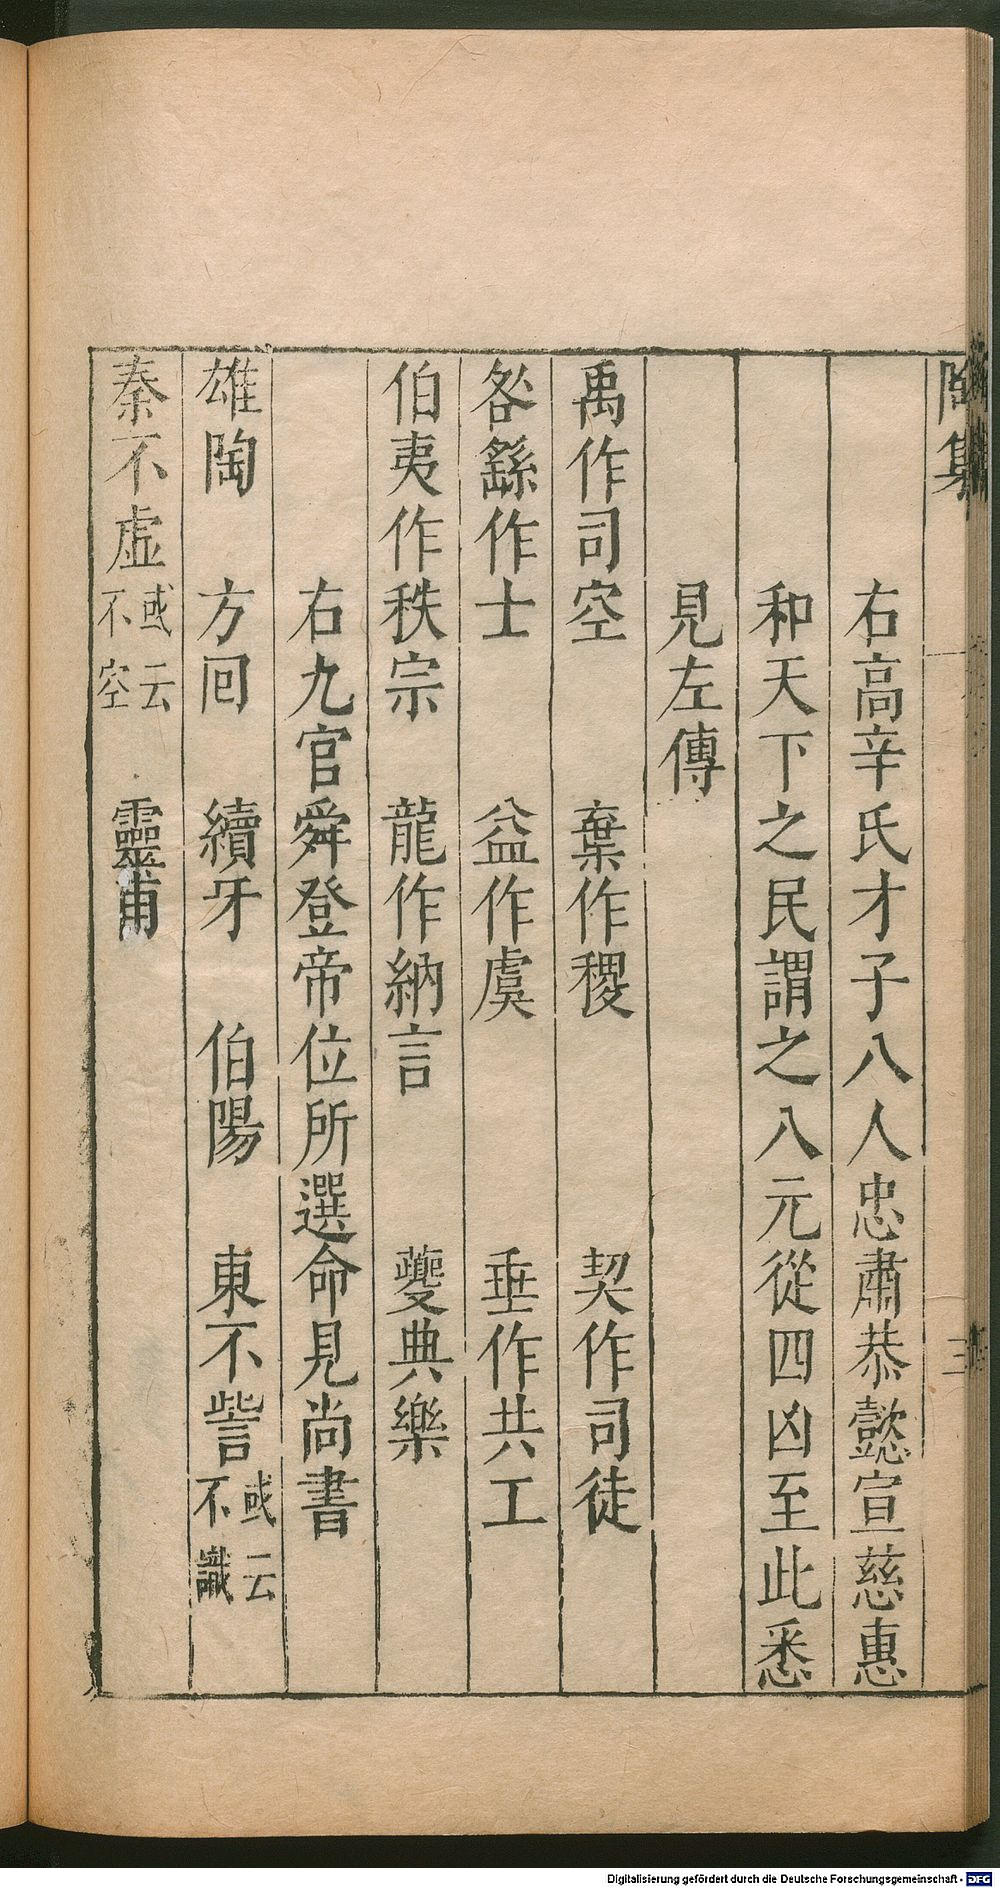 陶集
三
右高辛氏才子八人忠肅恭懿宣慈惠
和天下之民謂之八元從四凶至此悉
見左傳
禹作司空　棄作稷　契作司徒
咎繇作士　益作虞　垂作共工
伯夷作秩宗　龍作納言　夔典樂
右九官舜登帝位所選命見尚書
雄陶　方回　續牙　伯陽　東不訾或云不識
秦不虛或云不空　靈甫
Digitalisierung gefördert durch die Deutsche Forschungsgemeinschaft - DFG